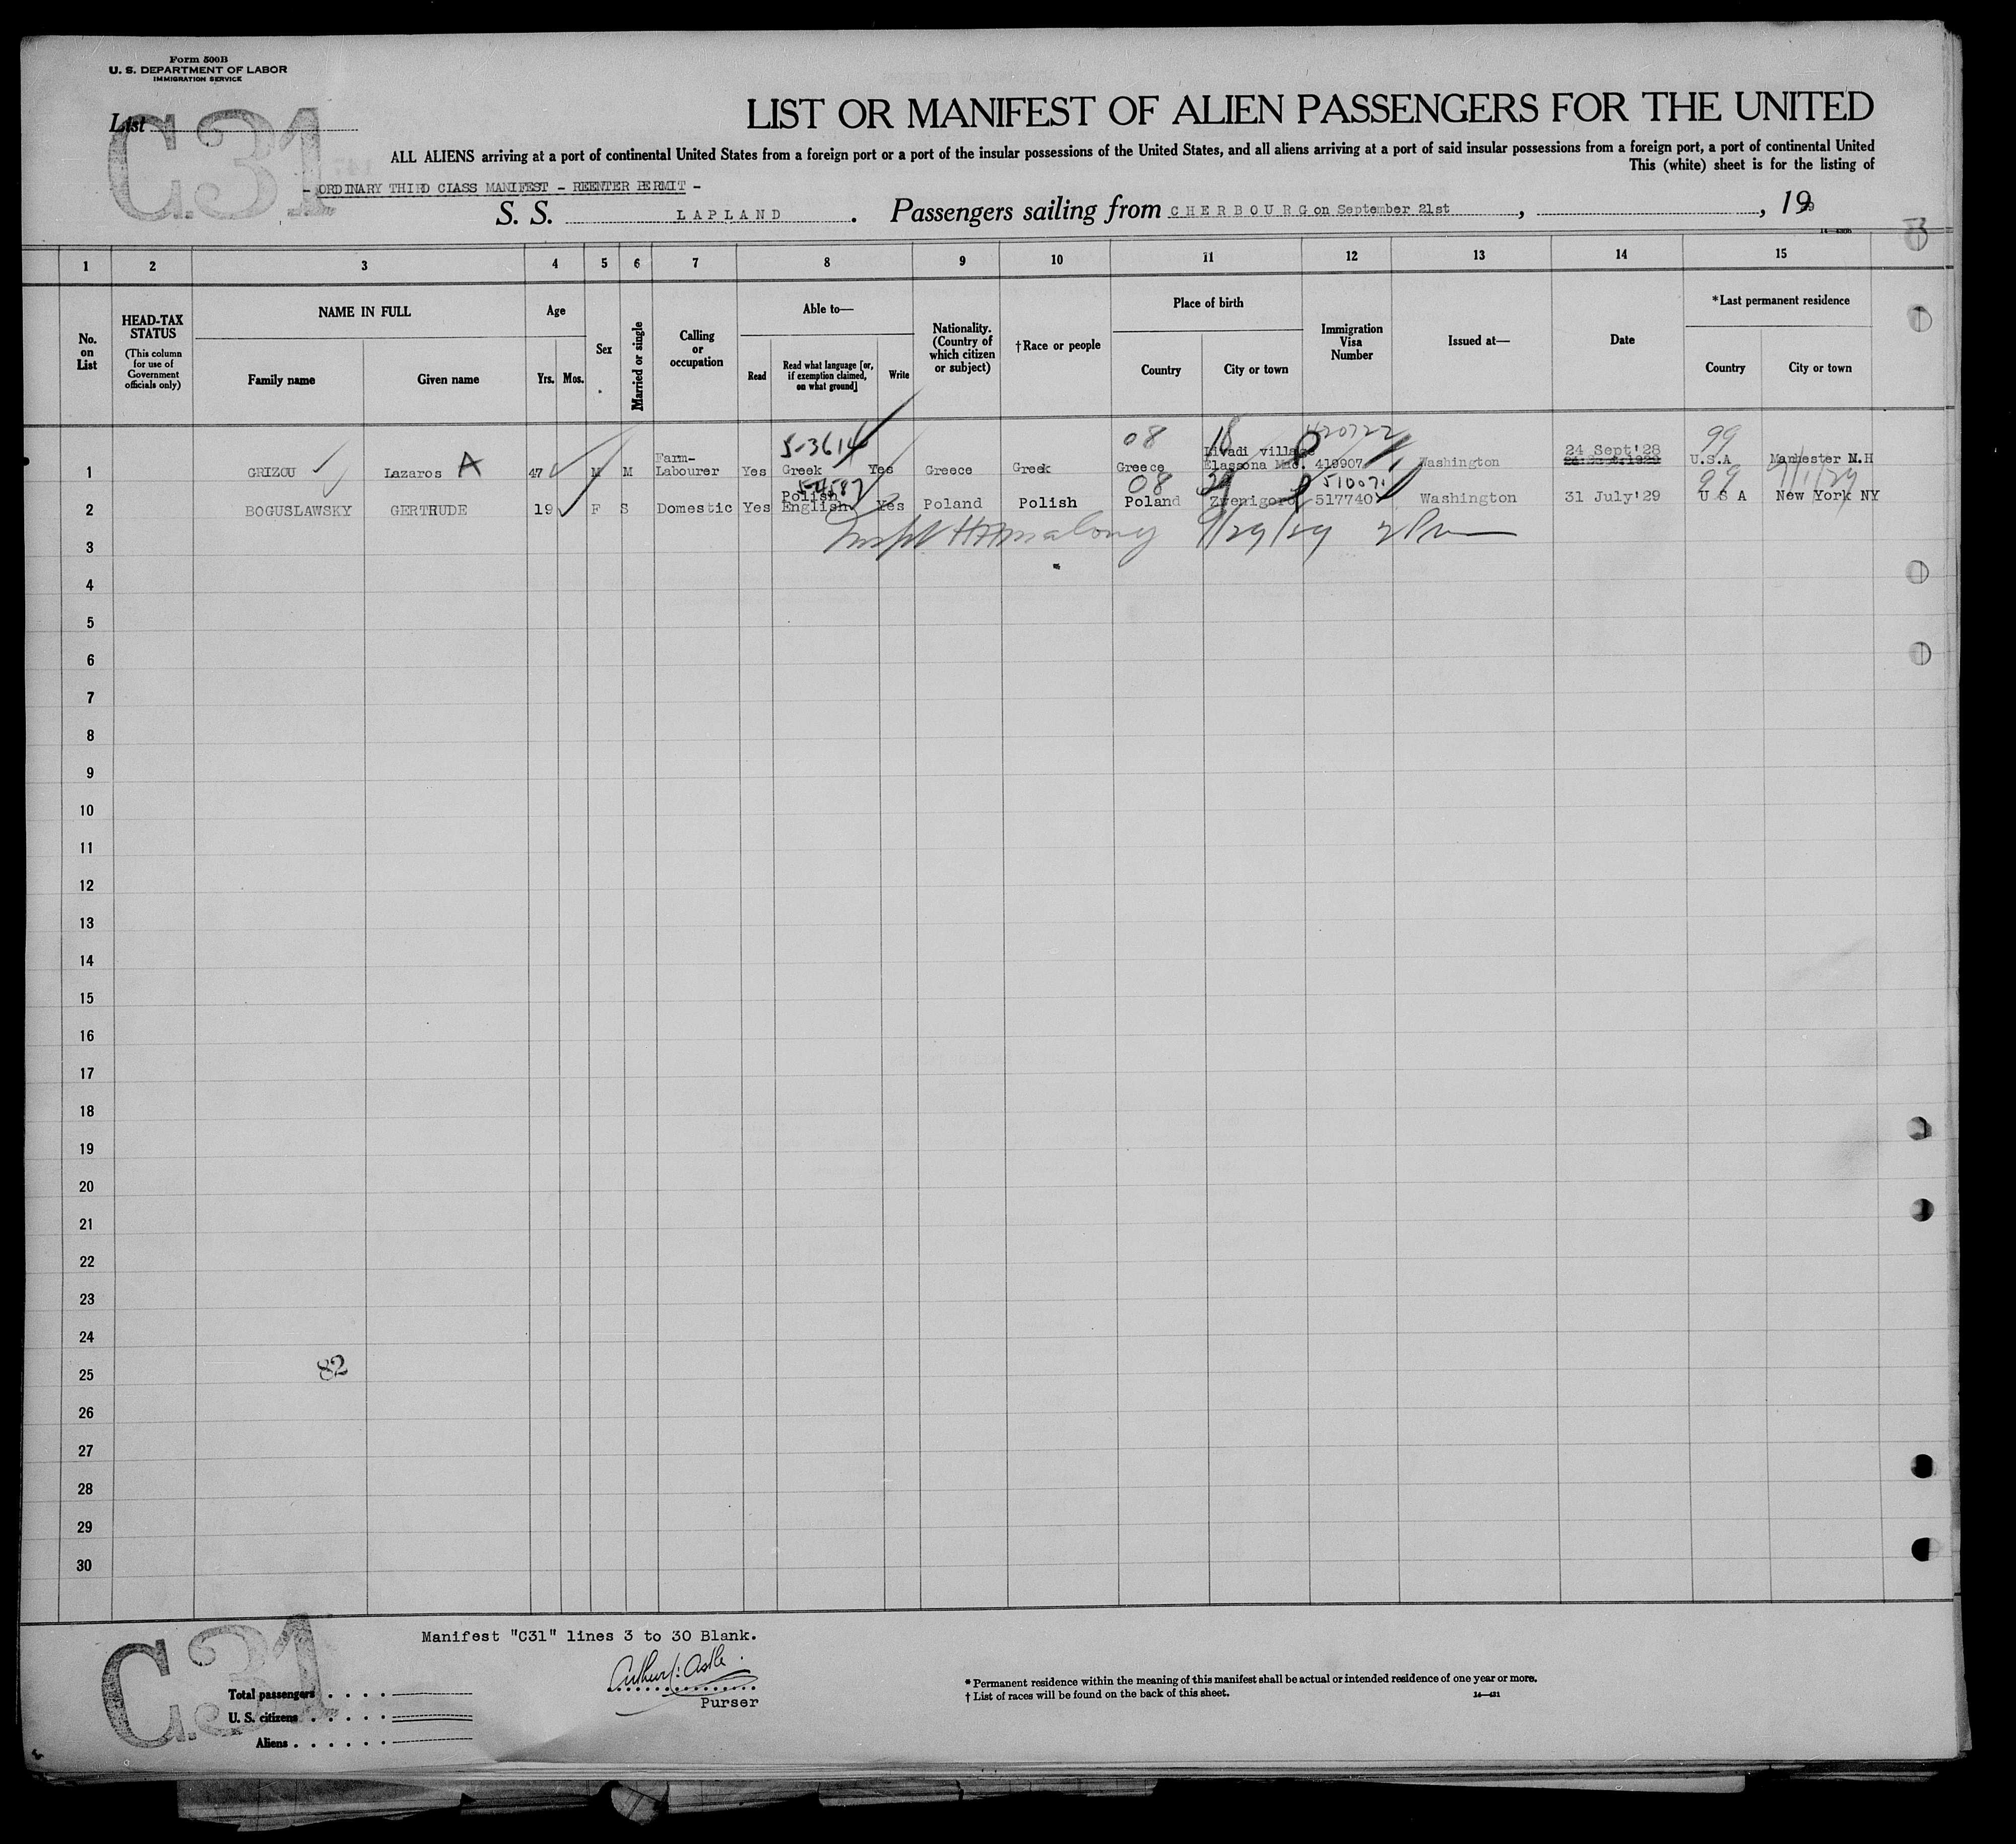 Form 500B
U. S. DEPARTMENT OF LABOR
IMMIGRATION SERVICE
C.31
List
LIST OR MANIFEST OF ALIEN PASSENGERS FOR THE UNITED
ALL ALIENS arriving at a port of continental United States from a foreign port or a port of the insular possessions of the United States, and all aliens arriving at a port of said insular possessions from a foreign port, a port of continental United
This (white) sheet is for the listing of
- ORDINARY THIRD CLASS MANIFEST - REENTER PERMIT -
S. S. LAPLAND . Passengers sailing from CHERBOURG on September 21st , , 1929
1 2 3 4 5 6 7 8 9 10 11 12 13 14 15
No. on List
HEAD-TAX STATUS
(This column for use of Government officials only)
NAME IN FULL
Family name Given name
Age
Yrs. Mos.
Sex
Married or single
Calling or occupation
Able to—
Read Read what language [or, if exemption claimed, on what ground] Write
Nationality. (Country of which citizen or subject)
†Race or people
Place of birth
Country City or town
Immigration Visa Number
Issued at—
Date
*Last permanent residence
Country City or town
5-3614 08 18 420722 99
1 GRIZOU Lazaros A 47 M M Farm-Labourer Yes Greek Yes Greece Greek Greece Livadi village Elassona Mac. 419907 Washington 24 Sept'28 U.S.A Manhester N.H
5-4587 08 39 510071 99 9/1/29
2 BOGUSLAWSKY GERTRUDE 19 F S Domestic Yes Polish English Yes Poland Polish Poland Zvenigoro 517740 Washington 31 July'29 U S A New York NY
3 9/29/29
4
5
6
7
8
9
10
11
12
13
14
15
16
17
18
19
20
21
22
23
24
25 82
26
27
28
29
30
C.31
Manifest "C31" lines 3 to 30 Blank.
Purser
Total passengers
U. S. citizens
Aliens
* Permanent residence within the meaning of this manifest shall be actual or intended residence of one year or more.
† List of races will be found on the back of this sheet.
14—431